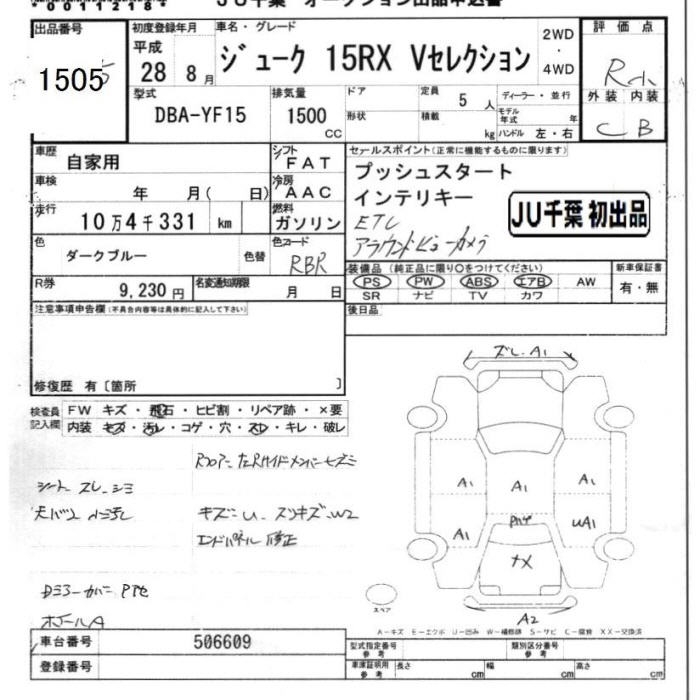 00112184
JU千葉 オークション出品申込書
出品番号
1505
初度登録年月
平成
28 8月
車名・グレード
ジューク 15RX Vセレクション
2WD
・
4WD
評価点
R
外装 内装
C B
型式
DBA-YF15
排気量
1500
CC
ドア
形状
定員
5 人
積載
kg
ディーラー・並行
モデル
年式 年
ハンドル 左・右
車歴
自家用
シフト
FAT
車検
年 月( 日)
冷房
AAC
走行
10万4千331 km
燃料
ガソリン
色
ダークブルー
色替
色コード
RBR
R券
9,230円
名変通知期限
月 日
セールスポイント(正常に機能するものに限ります)
プッシュスタート
インテリキー
ETC
アラウンドビューカメラ
JU千葉 初出品
装備品(純正品に限り○をつけてください)
PS PW ABS エアB AW
SR ナビ TV カワ
新車保証書
有・無
後日品
注意事項申告欄(不具合内容等は具体的に記入して下さい)
修復歴 有〔箇所 〕
検査員
記入欄
FW キズ・飛石・ヒビ割・リペア跡・×要
内装 キズ・汚レ・コゲ・穴・スレ・キレ・破レ
シート スレ シミ
エンドパネル 修正
Dミラーカバー
ズレ.A1
A1
A1
A1
A1
UA1
A2
スペア
A-キズ E-エクボ U-凹み W-補修跡 S-サビ C-腐食 XX-交換済
車台番号
506609
登録番号
型式指定番号
参考
類別区分番号
参考
車庫証明用
参考
長さ cm
幅 cm
高さ cm